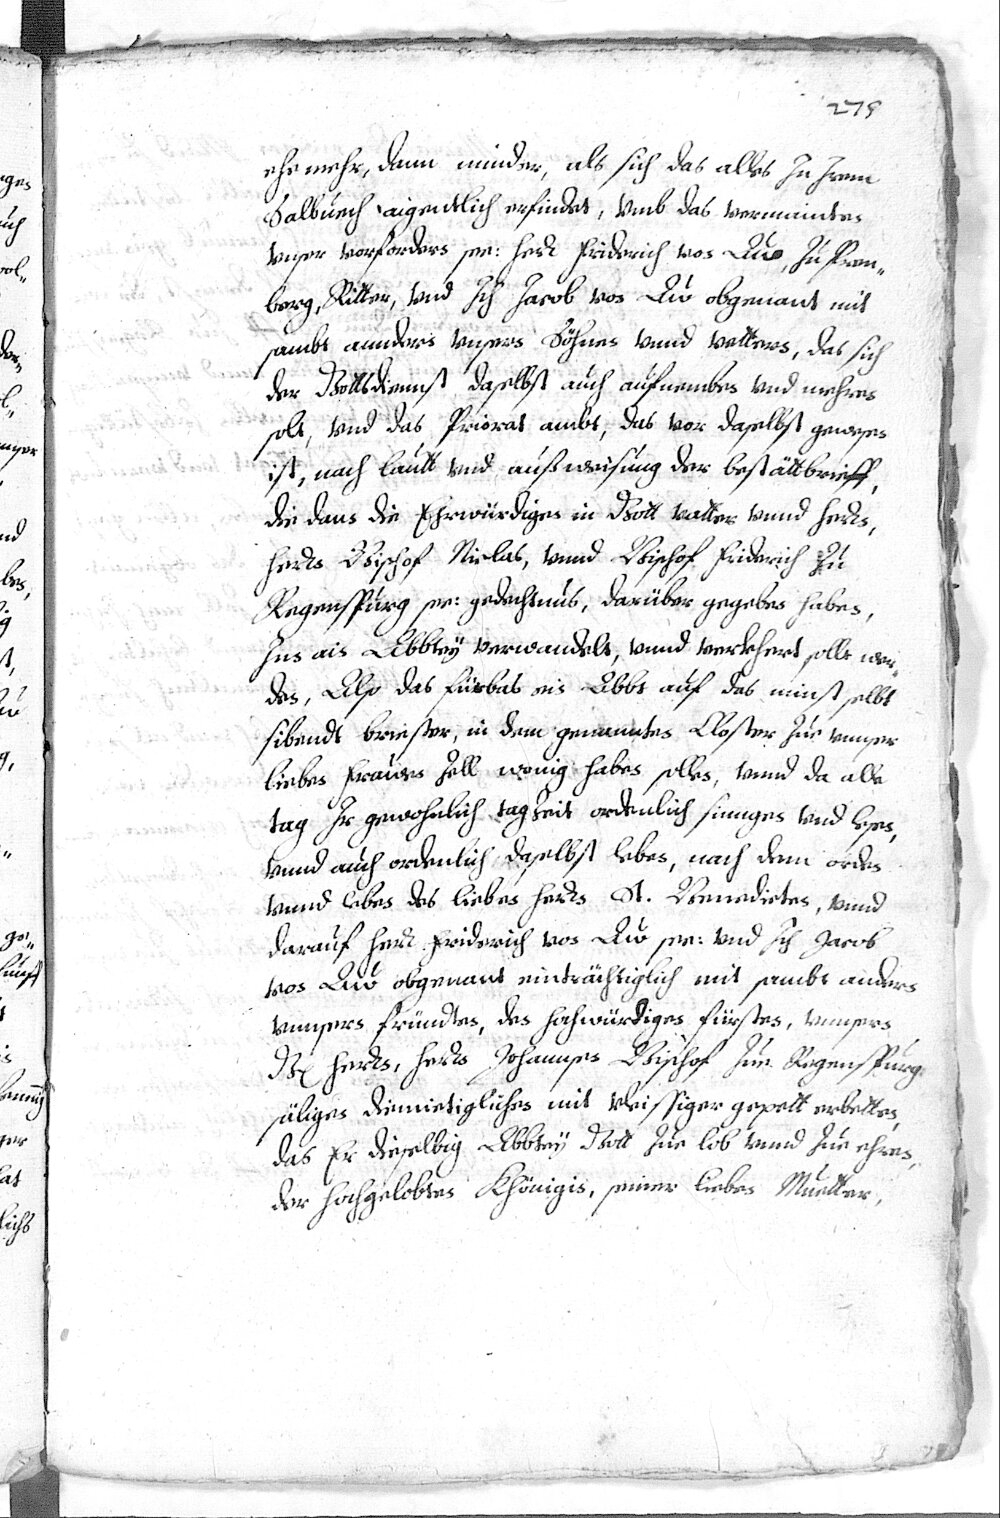 279
ehe mehr, dann minder, als sich das alles In Irem
Salbuech aigentlich erfindet, vmb das vermainten
vnser vorfordern see: herr Friderich von Au, zu Pren„
berg, Ritter, vnd Ich Jacob von Au obgenant mit
sambt anndern vnsern Söhnen vnnd vettern, das sich
der Gottsdiennst daselbst auch aufnemben vnd mehren
solt, vnd das Priorat ambt, das vor daselbst gewesen
ist, nach lautt vnd außweisung der bestättbrieff,
die dann die Ehrwürdigen in Gott vatter vnnd herrn,
herrn Bischof Niclas, vnnd Bischof Friderich zu
Regenspurg see: gedechtnus, darüber gegeben haben,
Inn ain Abbtey verwandelt, vnnd verkhert sollt wer„
den, Also das fürbas ein Abbt auf das minst selbt
sibendt briester, in dem genannten Closter zue vnnser
lieben Frauen Zell wonig haben sollen, vnnd da alle
tag Ir gewohnlich tagzeit ordenlich sinngen vnd lesen,
vnnd auch ordenlich daselbst leben, nach dem orden
vnnd leben des lieben herrn St. Benedicten, vnnd
darauf herr Friderich von Au see: vnd Ich Jacob
von Au obgenant einträchtiglich mit sambt andern
vnnsern fründten, den hochwürdigen fürsten, vnnsern
herrn, herrn Johannsen Bischof zue Regenspurg
säligen diemietiglichen mit vleissiger gepett erbetten,
das Er dieselbig Abbtey Gott zue lob vnnd zue ehren,
der hochgelobten Khönigin, seiner lieben Muetter,